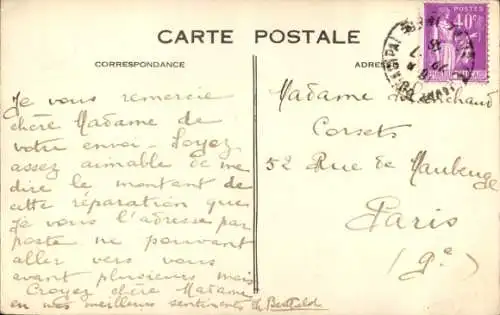 CARTE POSTALE
CORRESPONDANCE
Je vous remercie
chère Madame de
votre envoi. Soyez
assez aimable de me
dire le montant de
cette réparation que
je vous l'adresse par
poste ne pouvant
aller vers vous
avant plusieurs mois
Croyez chère Madame
en mes meilleurs sentiments
ADRES
Madame Marchand
Corsets
52 Rue de Maubeuge
Paris
(9e)
POSTES
40c